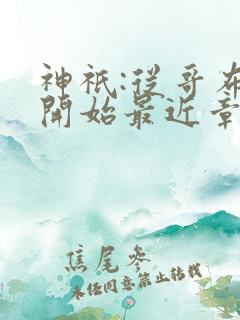 神祇:從哥布
開始最近章
焦尾參
未經同意禁止轉載